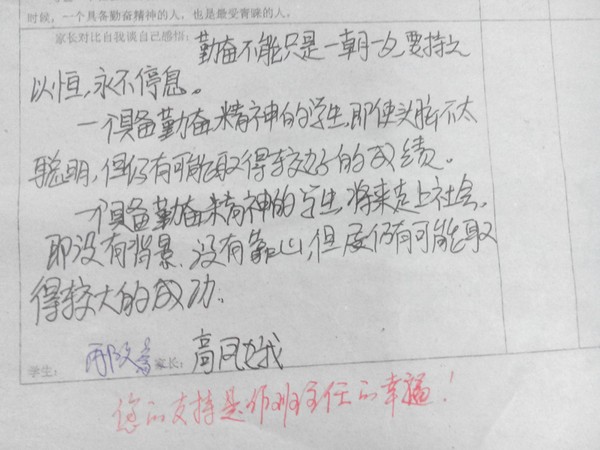 时候，一个具备勤奋精神的人，也是最受青睐的人。
家长对比自我谈自己感悟：勤奋不能只是一朝一夕，要持之
以恒，永不停息。
一个具备勤奋精神的学生，即使头脑不太
聪明，但仍有可能取得较好的成绩。
一个具备勤奋精神的学生，将来走上社会，
即没有背景、没有靠山，但仍有可能取
得较大的成功。
学生： 家长：高凤娥
您的支持是作班主任的幸福！